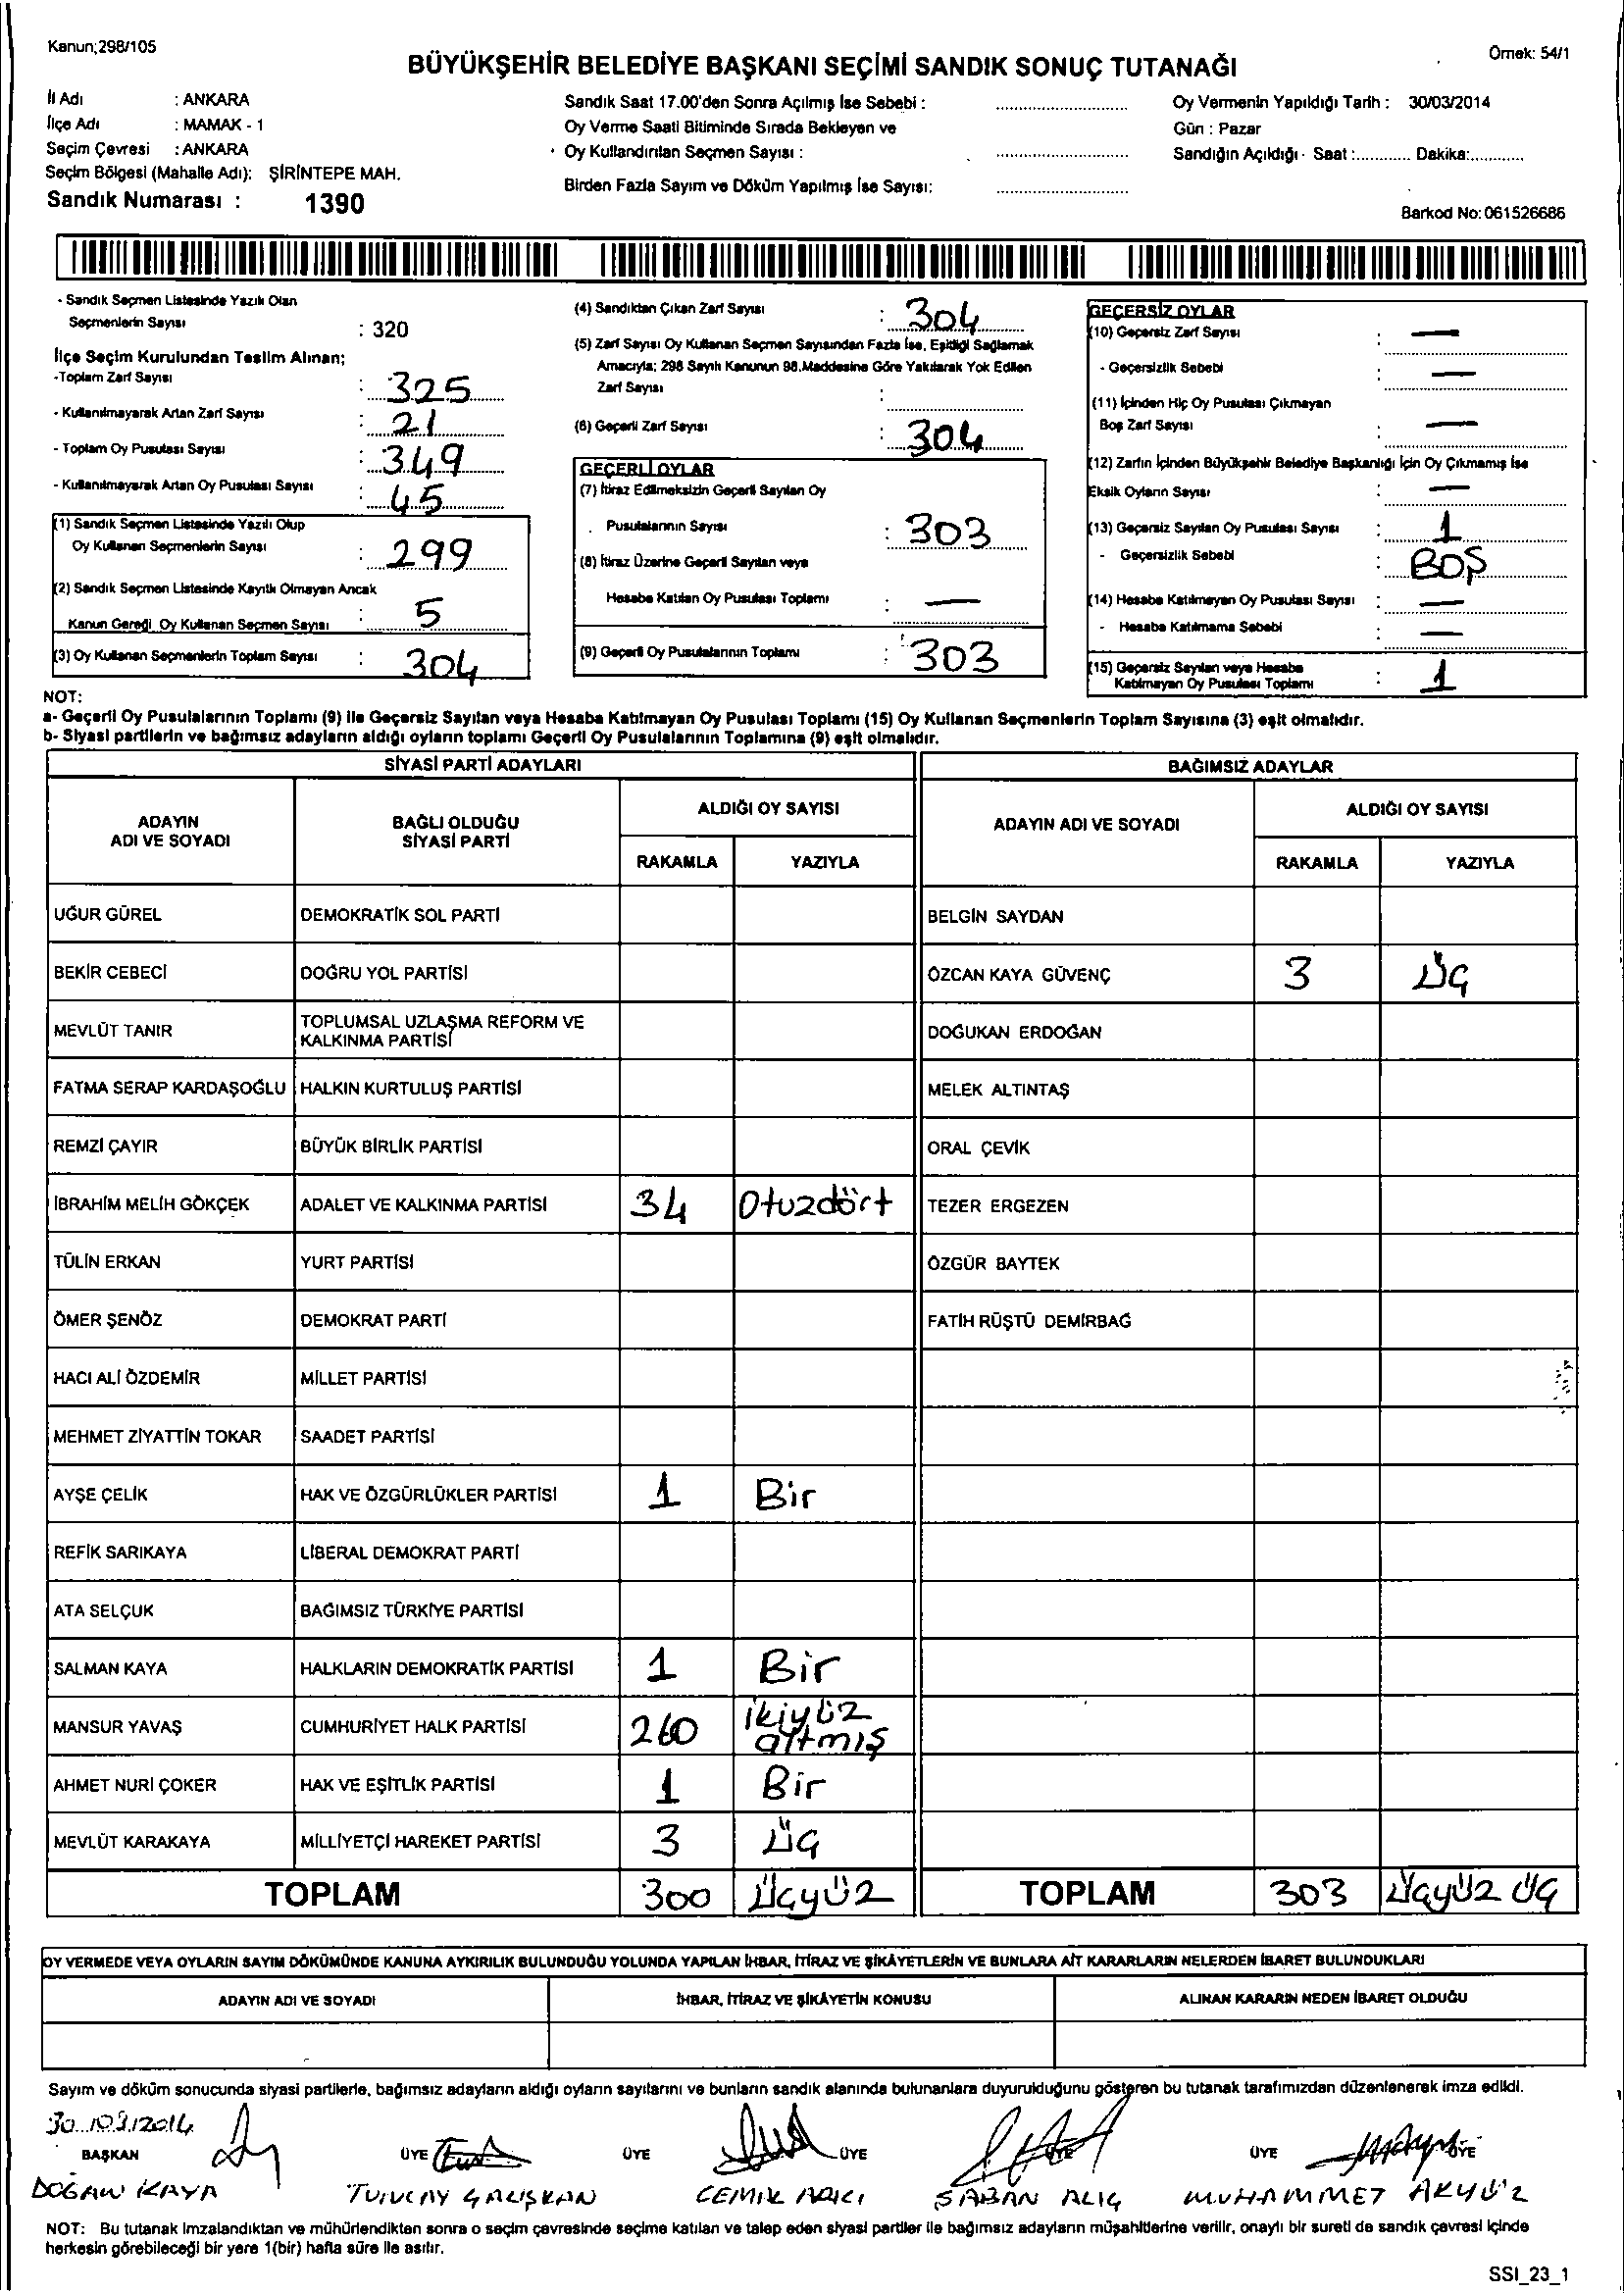 Kanun;298/105
Örnek: 54/1
BÜYÜKŞEHİR BELEDİYE BAŞKANI SEÇİMİ SANDIK SONUÇ TUTANAĞI
İl Adı : ANKARA
İlçe Adı : MAMAK - 1
Seçim Çevresi : ANKARA
Seçim Bölgesi (Mahalle Adı): ŞİRİNTEPE MAH.
Sandık Numarası : 1390
Sandık Saat 17.00'den Sonra Açılmış İse Sebebi : ..............................
Oy Verme Saati Bitiminde Sırada Bekleyen ve
Oy Kullandırılan Seçmen Sayısı : ..............................
Birden Fazla Sayım ve Döküm Yapılmış İse Sayısı: ..............................
Oy Vermenin Yapıldığı Tarih : 30/03/2014
Gün : Pazar
Sandığın Açıldığı - Saat :............ Dakika:............
Barkod No: 061526686
- Sandık Seçmen Listesinde Yazılı Olan
Seçmenlerin Sayısı : 320
İlçe Seçim Kurulundan Teslim Alınan;
-Toplam Zarf Sayısı : 325
- Kullanılmayarak Artan Zarf Sayısı : 21
- Toplam Oy Pusulası Sayısı : 349
- Kullanılmayarak Artan Oy Pusulası Sayısı : 45
(1) Sandık Seçmen Listesinde Yazılı Olup
Oy Kullanan Seçmenlerin Sayısı : 299
(2) Sandık Seçmen Listesinde Kayıtlı Olmayan Ancak
Kanun Gereği Oy Kullanan Seçmen Sayısı : 5
(3) Oy Kullanan Seçmenlerin Toplam Sayısı : 304
(4) Sandıktan Çıkan Zarf Sayısı : 304
(5) Zarf Sayısı Oy Kullanan Seçmen Sayısından Fazla İse, Eşitliği Sağlamak
Amacıyla; 298 Sayılı Kanunun 98.Maddesine Göre Yakılarak Yok Edilen
Zarf Sayısı :
(6) Geçerli Zarf Sayısı : 304
GEÇERLİ OYLAR
(7) İtiraz Edilmeksizin Geçerli Sayılan Oy
Pusulalarının Sayısı : 303
(8) İtiraz Üzerine Geçerli Sayılan veya
Hesaba Katılan Oy Pusulası Toplamı : —
(9) Geçerli Oy Pusulalarının Toplamı : 303
GEÇERSİZ OYLAR
(10) Geçersiz Zarf Sayısı : —
- Geçersizlik Sebebi : —
(11) İçinden Hiç Oy Pusulası Çıkmayan
Boş Zarf Sayısı : —
(12) Zarfın İçinden Büyükşehir Belediye Başkanlığı İçin Oy Çıkmamış İse
Eksik Oyların Sayısı : —
(13) Geçersiz Sayılan Oy Pusulası Sayısı : 1
- Geçersizlik Sebebi : BOŞ
(14) Hesaba Katılmayan Oy Pusulası Sayısı : —
- Hesaba Katılmama Sebebi : —
(15) Geçersiz Sayılan veya Hesaba
Katılmayan Oy Pusulası Toplamı : 1
NOT:
a- Geçerli Oy Pusulalarının Toplamı (9) ile Geçersiz Sayılan veya Hesaba Katılmayan Oy Pusulası Toplamı (15) Oy Kullanan Seçmenlerin Toplam Sayısına (3) eşit olmalıdır.
b- Siyasi partilerin ve bağımsız adayların aldığı oyların toplamı Geçerli Oy Pusulalarının Toplamına (9) eşit olmalıdır.
SİYASİ PARTİ ADAYLARI BAĞIMSIZ ADAYLAR
ADAYIN ADI VE SOYADI BAĞLI OLDUĞU SİYASİ PARTİ ALDIĞI OY SAYISI ADAYIN ADI VE SOYADI ALDIĞI OY SAYISI
RAKAMLA YAZIYLA RAKAMLA YAZIYLA
UĞUR GÜREL DEMOKRATİK SOL PARTİ BELGİN SAYDAN
BEKİR CEBECİ DOĞRU YOL PARTİSİ ÖZCAN KAYA GÜVENÇ 3 ÜÇ
MEVLÜT TANIR TOPLUMSAL UZLAŞMA REFORM VE KALKINMA PARTİSİ DOĞUKAN ERDOĞAN
FATMA SERAP KARDAŞOĞLU HALKIN KURTULUŞ PARTİSİ MELEK ALTINTAŞ
REMZİ ÇAYIR BÜYÜK BİRLİK PARTİSİ ORAL ÇEVİK
İBRAHİM MELİH GÖKÇEK ADALET VE KALKINMA PARTİSİ 34 Otuzdört TEZER ERGEZEN
TÜLİN ERKAN YURT PARTİSİ ÖZGÜR BAYTEK
ÖMER ŞENÖZ DEMOKRAT PARTİ FATİH RÜŞTÜ DEMİRBAĞ
HACI ALİ ÖZDEMİR MİLLET PARTİSİ
MEHMET ZİYATTİN TOKAR SAADET PARTİSİ
AYŞE ÇELİK HAK VE ÖZGÜRLÜKLER PARTİSİ 1 Bir
REFİK SARIKAYA LİBERAL DEMOKRAT PARTİ
ATA SELÇUK BAĞIMSIZ TÜRKİYE PARTİSİ
SALMAN KAYA HALKLARIN DEMOKRATİK PARTİSİ 1 Bir
MANSUR YAVAŞ CUMHURİYET HALK PARTİSİ 260 ikiyüz altmış
AHMET NURİ ÇOKER HAK VE EŞİTLİK PARTİSİ 1 Bir
MEVLÜT KARAKAYA MİLLİYETÇİ HAREKET PARTİSİ 3 ÜÇ
TOPLAM 300 Üçyüz TOPLAM 303 Üçyüz ÜÇ
OY VERMEDE VEYA OYLARIN SAYIM DÖKÜMÜNDE KANUNA AYKIRILIK BULUNDUĞU YOLUNDA YAPILAN İHBAR, İTİRAZ VE ŞİKÂYETLERİN VE BUNLARA AİT KARARLARIN NELERDEN İBARET BULUNDUKLARI
ADAYIN ADI VE SOYADI İHBAR, İTİRAZ VE ŞİKÂYETİN KONUSU ALINAN KARARIN NEDEN İBARET OLDUĞU
Sayım ve döküm sonucunda siyasi partilerle, bağımsız adayların aldığı oyların sayılarını ve bunların sandık alanında bulunanlara duyurulduğunu gösteren bu tutanak tarafımızdan düzenlenerek imza edildi.
30/03/2014
BAŞKAN ÜYE ÜYE ÜYE ÜYE ÜYE ÜYE
DOĞAN KAYA TUNCAY ÇALIŞKAN CEMİL ŞABAN ALIÇ MUHAMMET AKYÜZ
NOT: Bu tutanak imzalandıktan ve mühürlendikten sonra o seçim çevresinde seçime katılan ve talep eden siyasi partiler ile bağımsız adayların müşahitlerine verilir, onaylı bir sureti de sandık çevresi içinde
herkesin görebileceği bir yere 1(bir) hafta süre ile asılır.
SSI_23_1